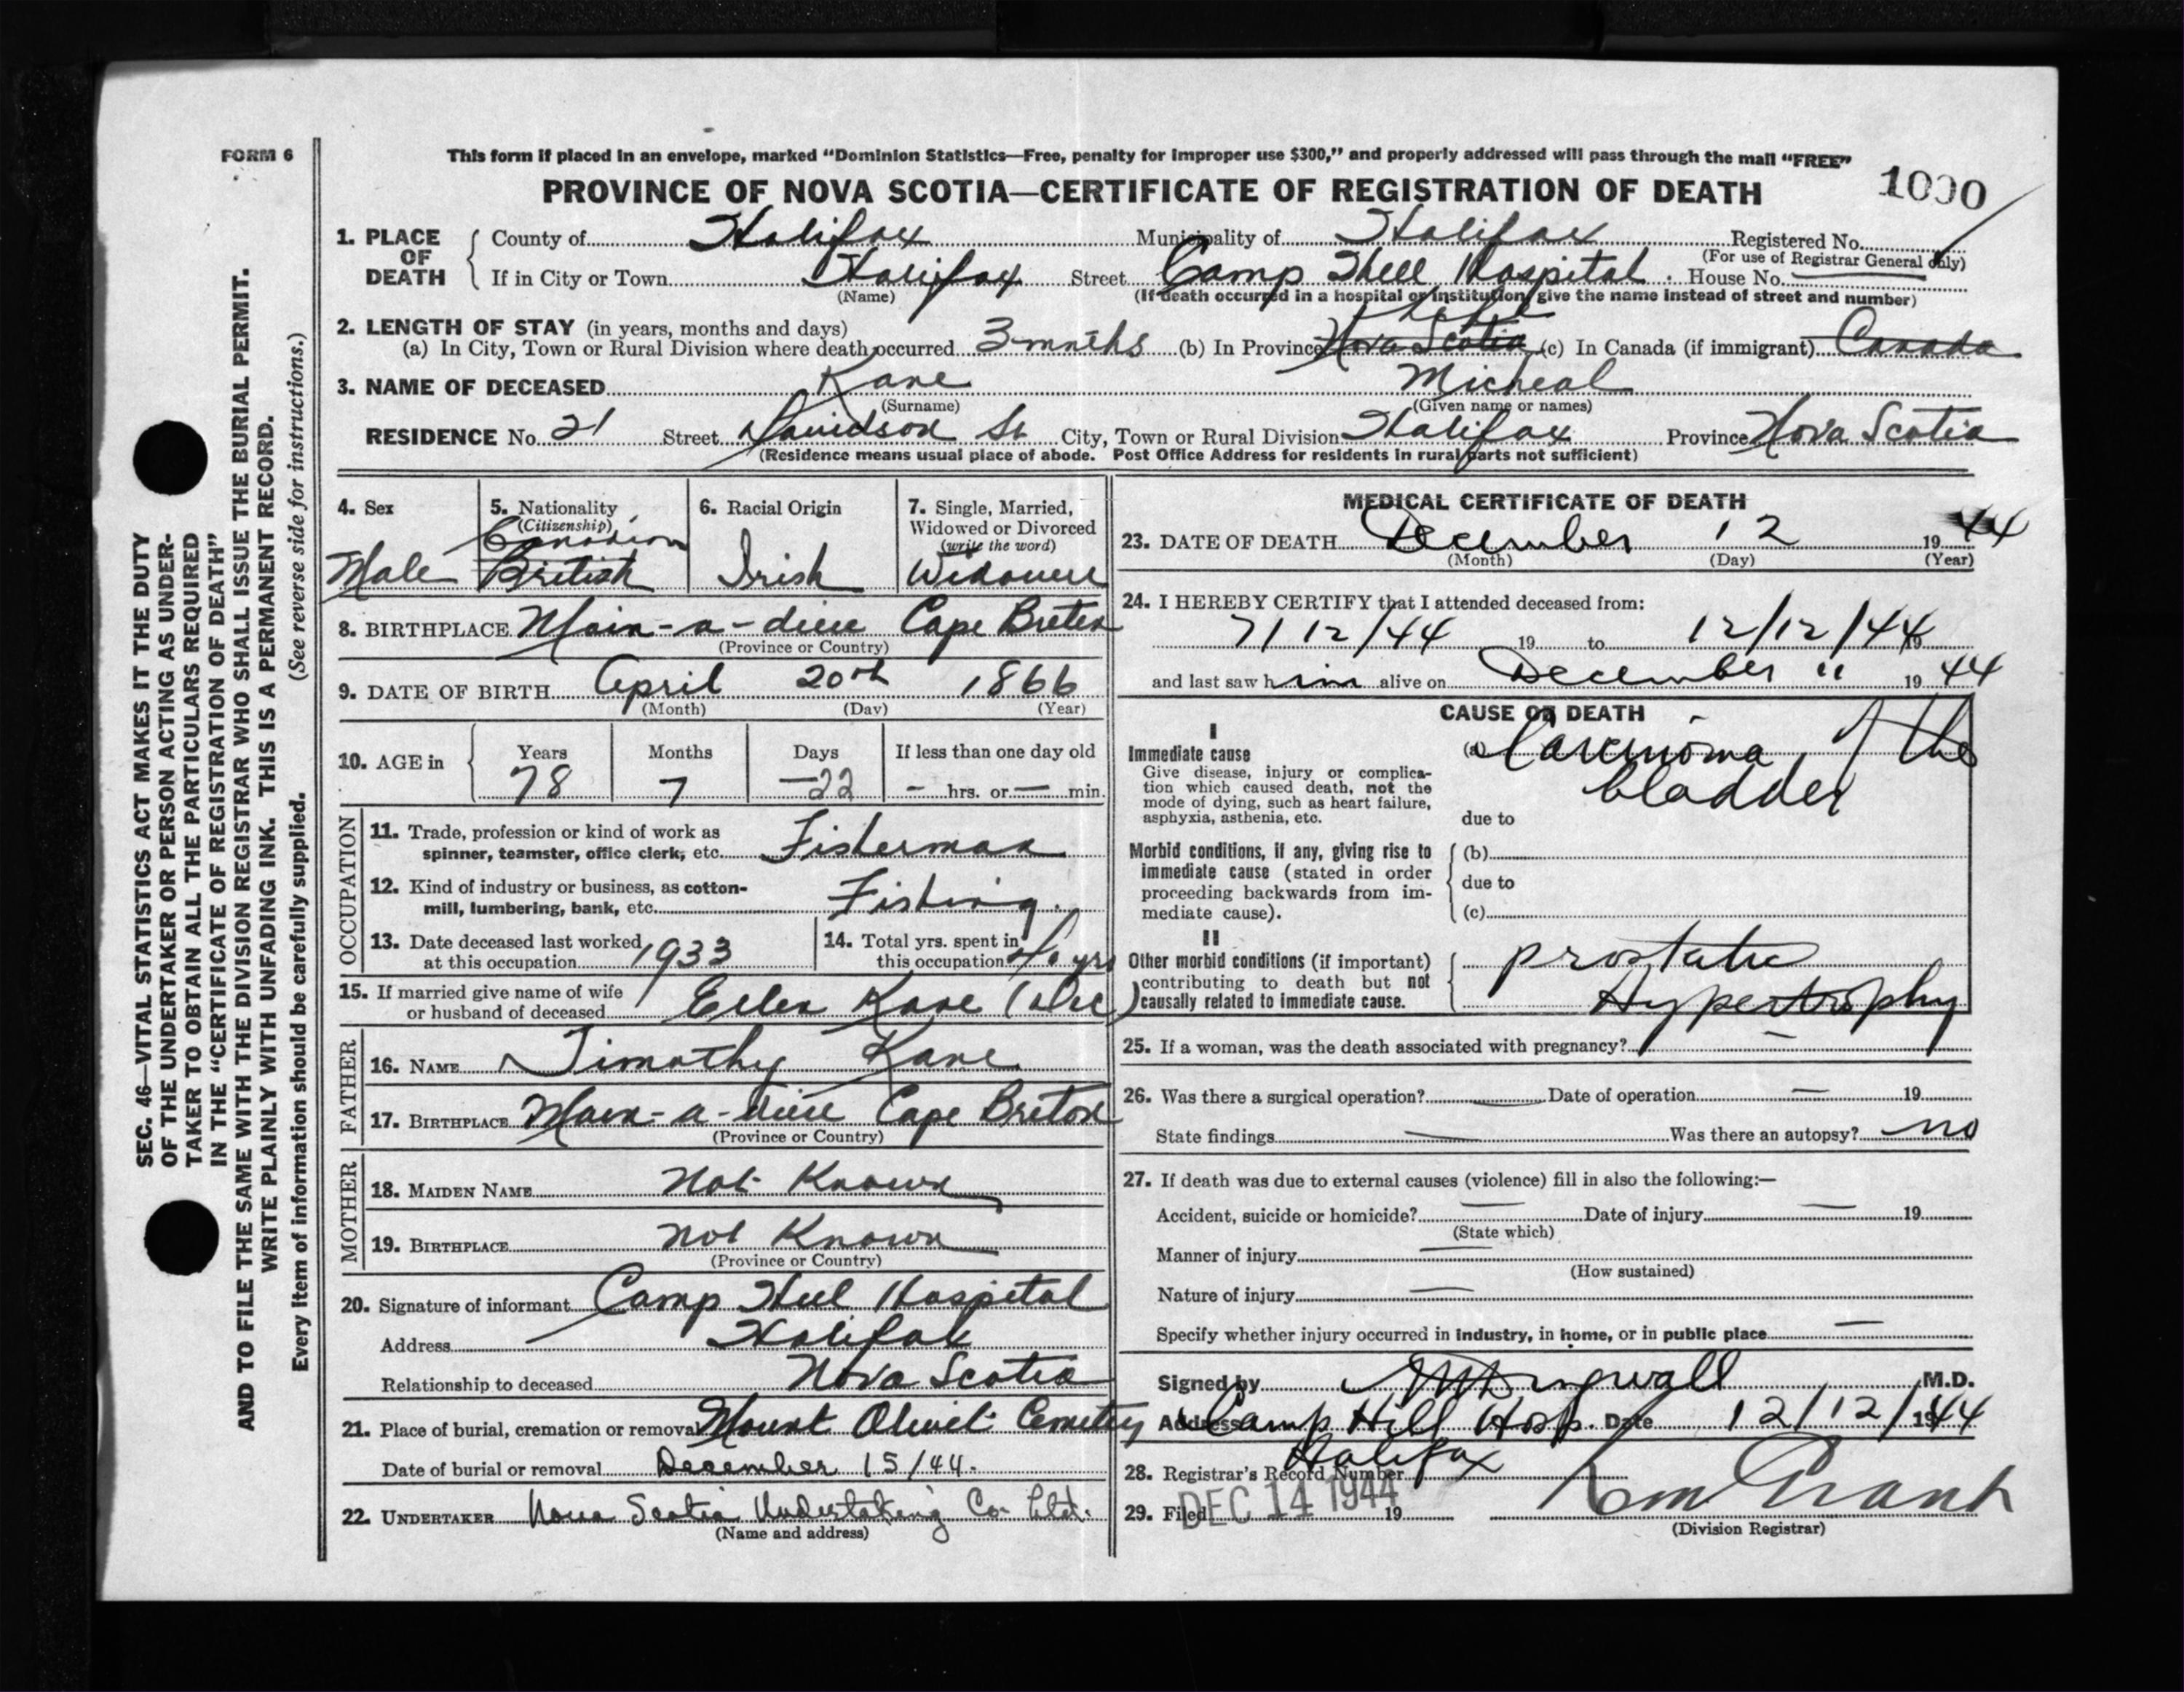 FORM 6
This form if placed in an envelope, marked "Dominion Statistics—Free, penalty for improper use $300," and properly addressed will pass through the mail "FREE"
PROVINCE OF NOVA SCOTIA—CERTIFICATE OF REGISTRATION OF DEATH
1000
1. PLACE OF DEATH { County of Halifax Municipality of Halifax Registered No.
(For use of Registrar General only)
If in City or Town Halifax Street Camp Hill Hospital House No.
(Name) (If death occurred in a hospital or institution, give the name instead of street and number)
2. LENGTH OF STAY (in years, months and days)
(a) In City, Town or Rural Division where death occurred 3 mnths (b) In Province Nova Scotia (c) In Canada (if immigrant) Canada
3. NAME OF DECEASED Kane Micheal
(Surname) (Given name or names)
RESIDENCE No. 21 Street Davidson St City, Town or Rural Division Halifax Province Nova Scotia
(Residence means usual place of abode. Post Office Address for residents in rural parts not sufficient)
4. Sex
Male
5. Nationality
(Citizenship)
Canadian
British
6. Racial Origin
Irish
7. Single, Married,
Widowed or Divorced
(write the word)
8. BIRTHPLACE Main-a-dieu Cape Breton
(Province or Country)
9. DATE OF BIRTH April 20th 1866
(Month) (Day) (Year)
10. AGE in { Years Months Days If less than one day old
78 7 —22 — hrs. or — min.
OCCUPATION
11. Trade, profession or kind of work as
spinner, teamster, office clerk, etc. Fisherman
12. Kind of industry or business, as cotton-
mill, lumbering, bank, etc. Fishing.
13. Date deceased last worked
at this occupation 1933
14. Total yrs. spent in
this occupation 40 yrs
15. If married give name of wife
or husband of deceased Ellen Kane (Dec)
FATHER
16. NAME Timothy Kane
17. BIRTHPLACE Main-a-dieu Cape Breton
(Province or Country)
MOTHER
18. MAIDEN NAME Not Known
19. BIRTHPLACE Not Known
(Province or Country)
20. Signature of informant Camp Hill Hospital
Address Halifax
Relationship to deceased Nova Scotia
21. Place of burial, cremation or removal Mount Olivet Cemetery
Date of burial or removal December 15/44.
22. UNDERTAKER Nova Scotia Undertaking Co. Ltd.
(Name and address)
MEDICAL CERTIFICATE OF DEATH
23. DATE OF DEATH December 12 1944
(Month) (Day) (Year)
24. I HEREBY CERTIFY that I attended deceased from:
7/12/44 19 to 12/12/44 19
and last saw him alive on December 11 1944
CAUSE OF DEATH
I
Immediate cause
Give disease, injury or complica-
tion which caused death, not the
mode of dying, such as heart failure,
asphyxia, asthenia, etc.
(a) Carcinoma of the
bladder
due to
Morbid conditions, if any, giving rise to
immediate cause (stated in order
proceeding backwards from im-
mediate cause).
(b)
due to
(c)
II
Other morbid conditions (if important)
contributing to death but not
causally related to immediate cause.
prostatic
Hypertrophy
25. If a woman, was the death associated with pregnancy? —
26. Was there a surgical operation? — Date of operation — 19
State findings — Was there an autopsy? no
27. If death was due to external causes (violence) fill in also the following:—
Accident, suicide or homicide? — Date of injury — 19
(State which)
Manner of injury —
(How sustained)
Nature of injury —
Specify whether injury occurred in industry, in home, or in public place —
Signed by Dingwall M.D.
Address Camp Hill Hosp. Date 12/12/1944
Halifax
28. Registrar's Record Number
29. Filed DEC 14 1944 19
Grant
(Division Registrar)
SEC. 46—VITAL STATISTICS ACT MAKES IT THE DUTY
OF THE UNDERTAKER OR PERSON ACTING AS UNDER-
TAKER TO OBTAIN ALL THE PARTICULARS REQUIRED
IN THE "CERTIFICATE OF REGISTRATION OF DEATH"
AND TO FILE THE SAME WITH THE DIVISION REGISTRAR WHO SHALL ISSUE THE BURIAL PERMIT.
WRITE PLAINLY WITH UNFADING INK. THIS IS A PERMANENT RECORD.
Every item of information should be carefully supplied. (See reverse side for instructions.)